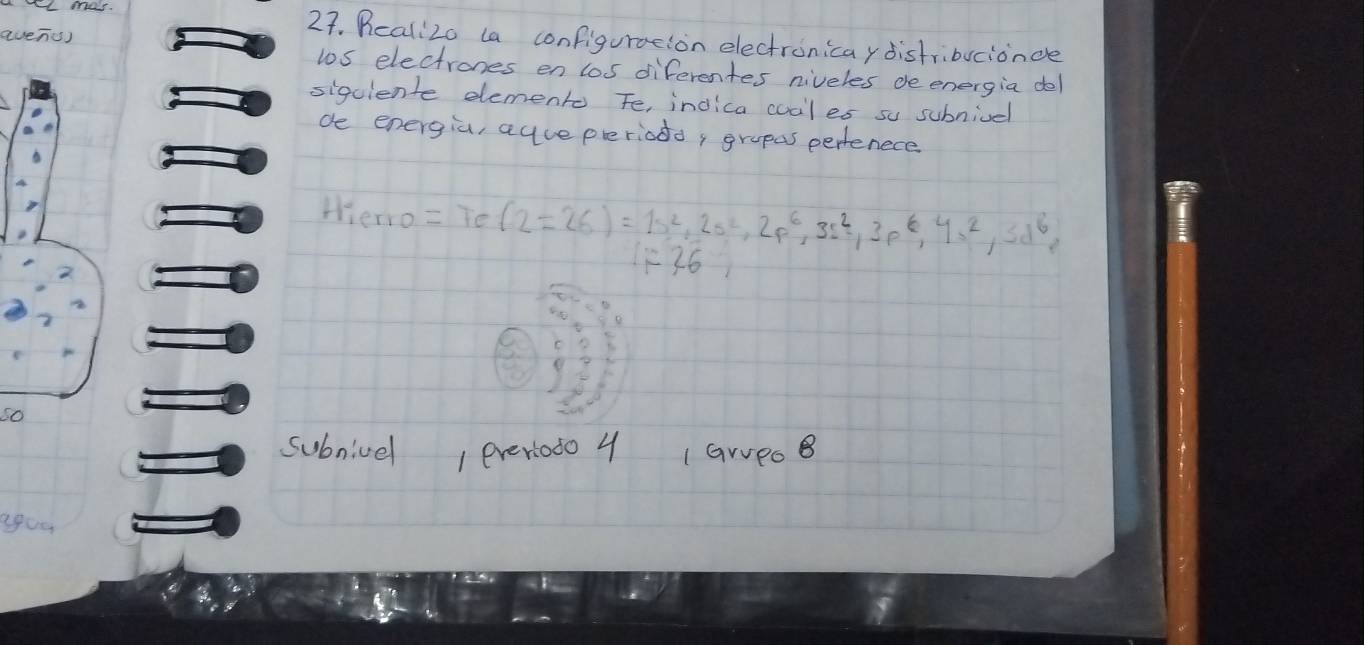 mas.
27. Realizo la configuración electrónica y distribución de
los electrones en los diferentes niveles de energia del
siguiente elemento Fe, indica cual es su subnivel
de energia, a que periodo, grupos pertenece.
Hierro = Fe (Z=26) = 1s², 2s², 2p⁶, 3s², 3p⁶, 4s², 3d⁶,
= 26
subnivel , periodo 4 , Grupo 8
so
agua